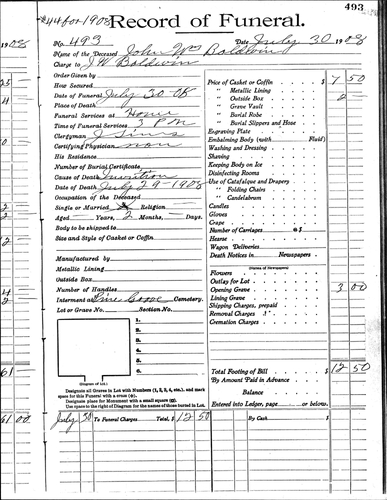 493
# 44 for 1908
Record of Funeral.
No. 493 Date July 30 1908
Name of the Deceased John Wm Baldwin
Charge to J W Baldwin
Order Given by
How Secured
Date of Funeral July 30-08
Place of Death
Funeral Services at Home
Time of Funeral Services 3 P M
Clergyman J Sims
Certifying Physician non
His Residence
Number of Burial Certificate
Cause of Death Inanition
Date of Death July 29-1908
Occupation of the Deceased
Single or Married Religion
Aged Years, 2 Months, Days.
Body to be shipped to
Size and Style of Casket or Coffin
Manufactured by
Metallic Lining
Outside Box
Number of Handles
Interment at Pine Grove Cemetery.
Lot or Grave No. Section No.
1.
2.
3.
4.
5.
6.
(Diagram of Lot.)
Designate all Graves in Lot with Numbers (1, 2, 3, 4, etc.), and mark
space for this Funeral with a cross (+).
Designate place for Monument with a small square (□).
Use space to the right of Diagram for the names of those buried in Lot.
Price of Casket or Coffin $ 7 50
" Metallic Lining
" Outside Box 2
" Grave Vault
" Burial Robe
" Burial Slippers and Hose
Engraving Plate
Embalming Body (with Fluid)
Washing and Dressing
Shaving
Keeping Body on Ice
Disinfecting Rooms
Use of Catafalque and Drapery
" Folding Chairs
" Candelabrum
Candles
Gloves
Crape
Number of Carriages @ $
Hearse
Wagon Deliveries
Death Notices in Newspapers
(Names of Newspapers)
Flowers
Outlay for Lot
Opening Grave 3 00
Lining Grave
Shipping Charges, prepaid
Removal Charges
Cremation Charges
Total Footing of Bill $ 12 50
By Amount Paid in Advance
Balance
Entered into Ledger, page or below.
July 30 To Funeral Charges Total, $ 12 50 By Cash $